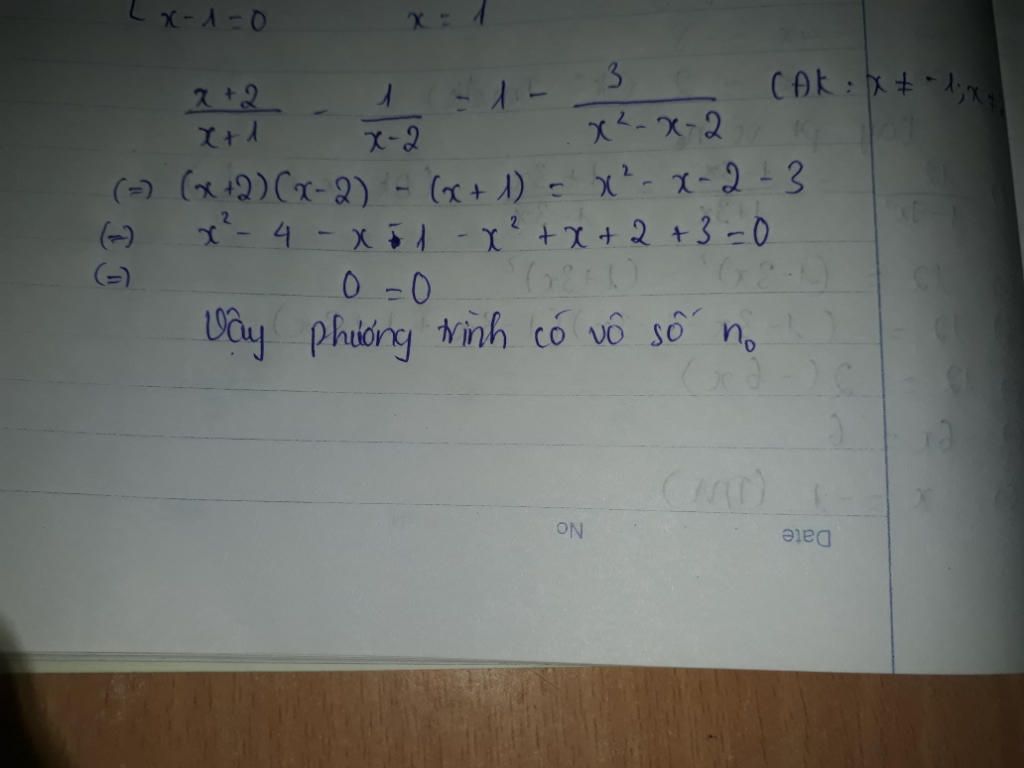 x - 1 = 0 x = 1
x+2/x+1 - 1/x-2 = 1 - 3/x² - x - 2 (ĐK: x ≠ -1; x ≠
(=) (x+2)(x-2) - (x+1) = x² - x - 2 - 3
(=) x² - 4 - x - 1 - x² + x + 2 + 3 = 0
(=) 0 = 0
Vậy phương trình có vô số n₀
No
Date